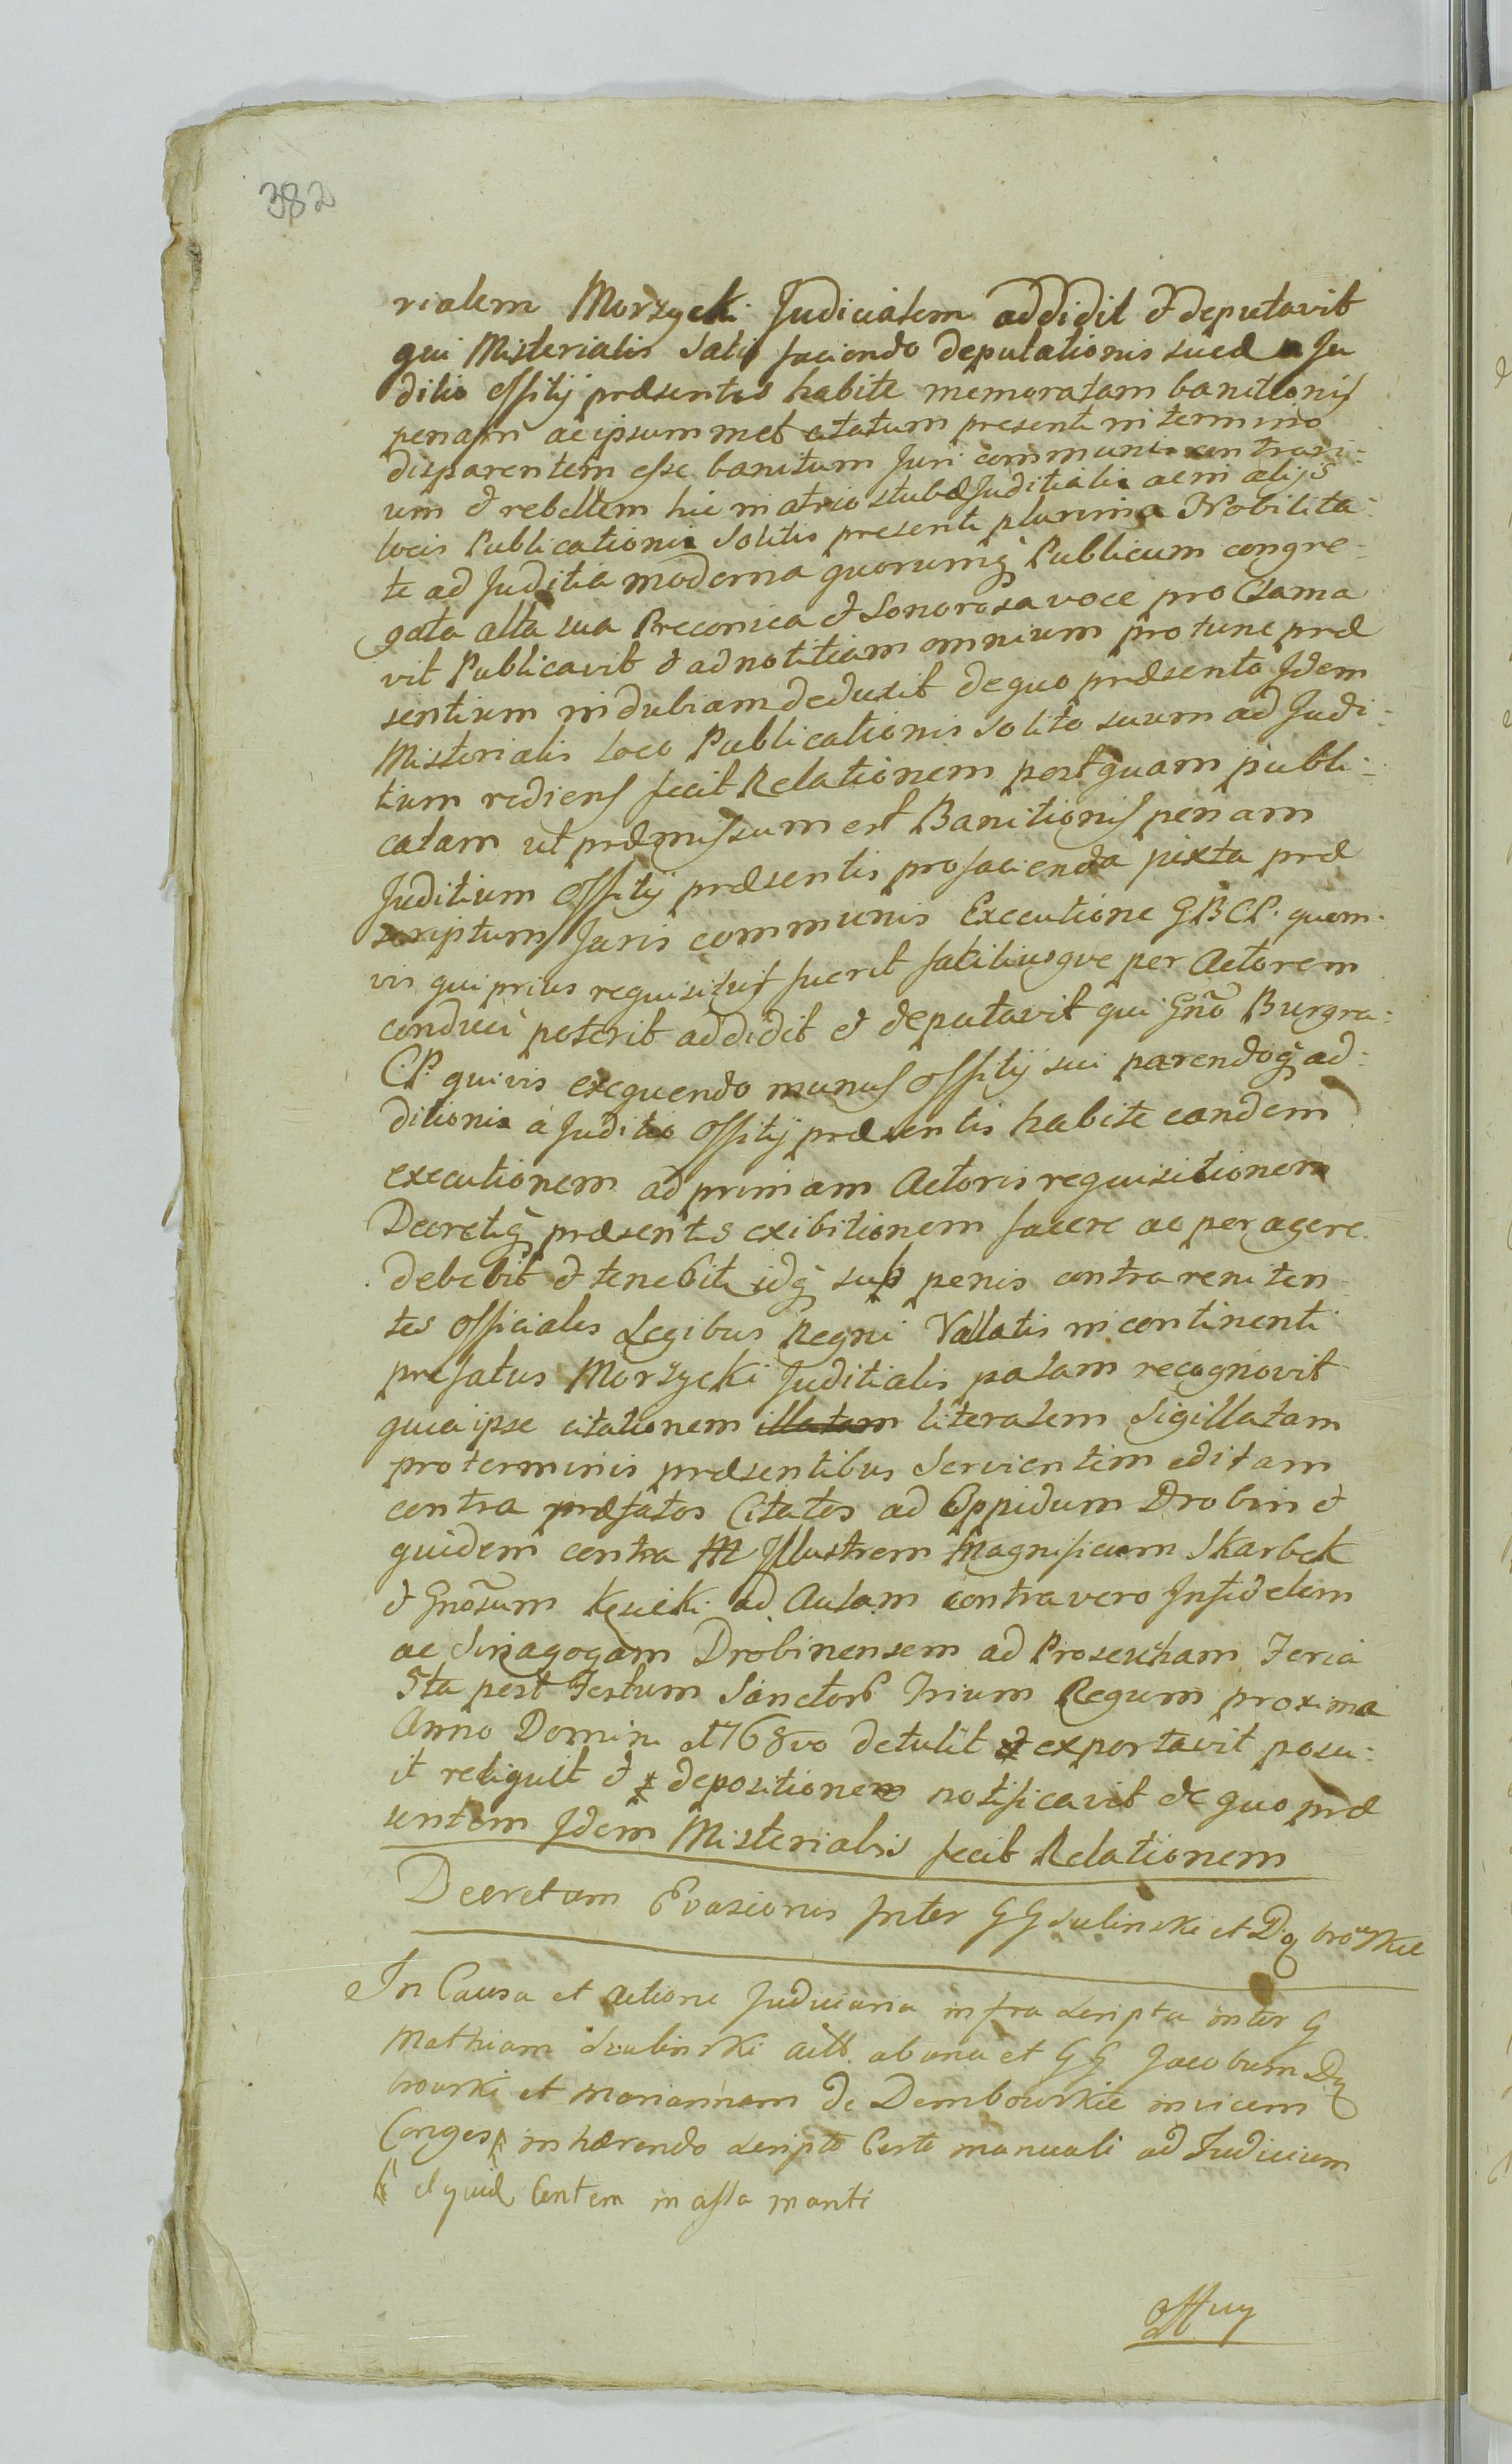 382
rialem Morzycki Judicialem addidit & deputavit
qui Misterialis Satis faciendo deputationis suæ a Ju
ditio Offitij præsentis habite memoratam banitionis
penam ac ipsummet citatum presenti in termino
disparentem esse banitum Juri communi contrari:
um & rebellem hic in atrio stubæ Juditialis ac in alijs
locis Publicationis Solitis presenti plurima Nobilita:
te ad Juditia moderna quorumq Publicum congre:
gata alta sua Preconica & Sonorosa voce pro Clama
vit Publicavit & ad notitiam omnium pro tunc præ
sentium indubiam deduxit de quo præsento Idem
Misterialis loco Publicationis Solito suum ad Judi:
tium rediens fecit Relationem postquam publi:
catam ut præmissum est Banitionis penam
Juditium Offitij præsentis pro facienda juxta præ
scriptum Juris communis Executione GBCP. quem:
vis qui prius requisitus fuerit faciliusque per Actorem
conduci poterit addidit & deputavit qui Gño Burgra:
C.P. quivis exequendo munus Offitij sui parendoq ad:
ditionis á Juditio Offitij præsentis habite eandem
executionem ad primam Actoris requisitionem
Decretiq præsentis exibitionem facere ac peragere
debebit & tenebit idq sub penis contra reniten
tes officiales Legibus Regni Vallatis in continenti
prefatus Morzycki Juditialis palam recognovit
quia ipse citationem illatam literalem Sigillatam
pro terminis præsentibus Servientem editam
contra præfatos Citatos ad Oppidum Drobin &
quidem contra M Illustrem Magnificum Skarbek
& Gnõsum Kęsicki ad Aulam contra vero Infidelem
ac Sinagogam Drobinensem ad Proseucham Feria
5ta post Festum Sanctorũ Trium Regum proxima
Anno Domini 1768vo detulit & exportavit posu:
it reliquit & depositionem notificavit de quo præ
sentem Idem Misterialis fecit Relationem
Decretum Evasionis Inter GG Sulinski et Dąbrowskie
In Causa et actione Judiciaria infra scripta inter G
Mathiam Sulinski ab una et GG Jacobum Dą
browski et Mariannam de Dembowskie invicem
Conges inhærendo scripto Certo manuali ad Judicium
et quid Centem in assa manti